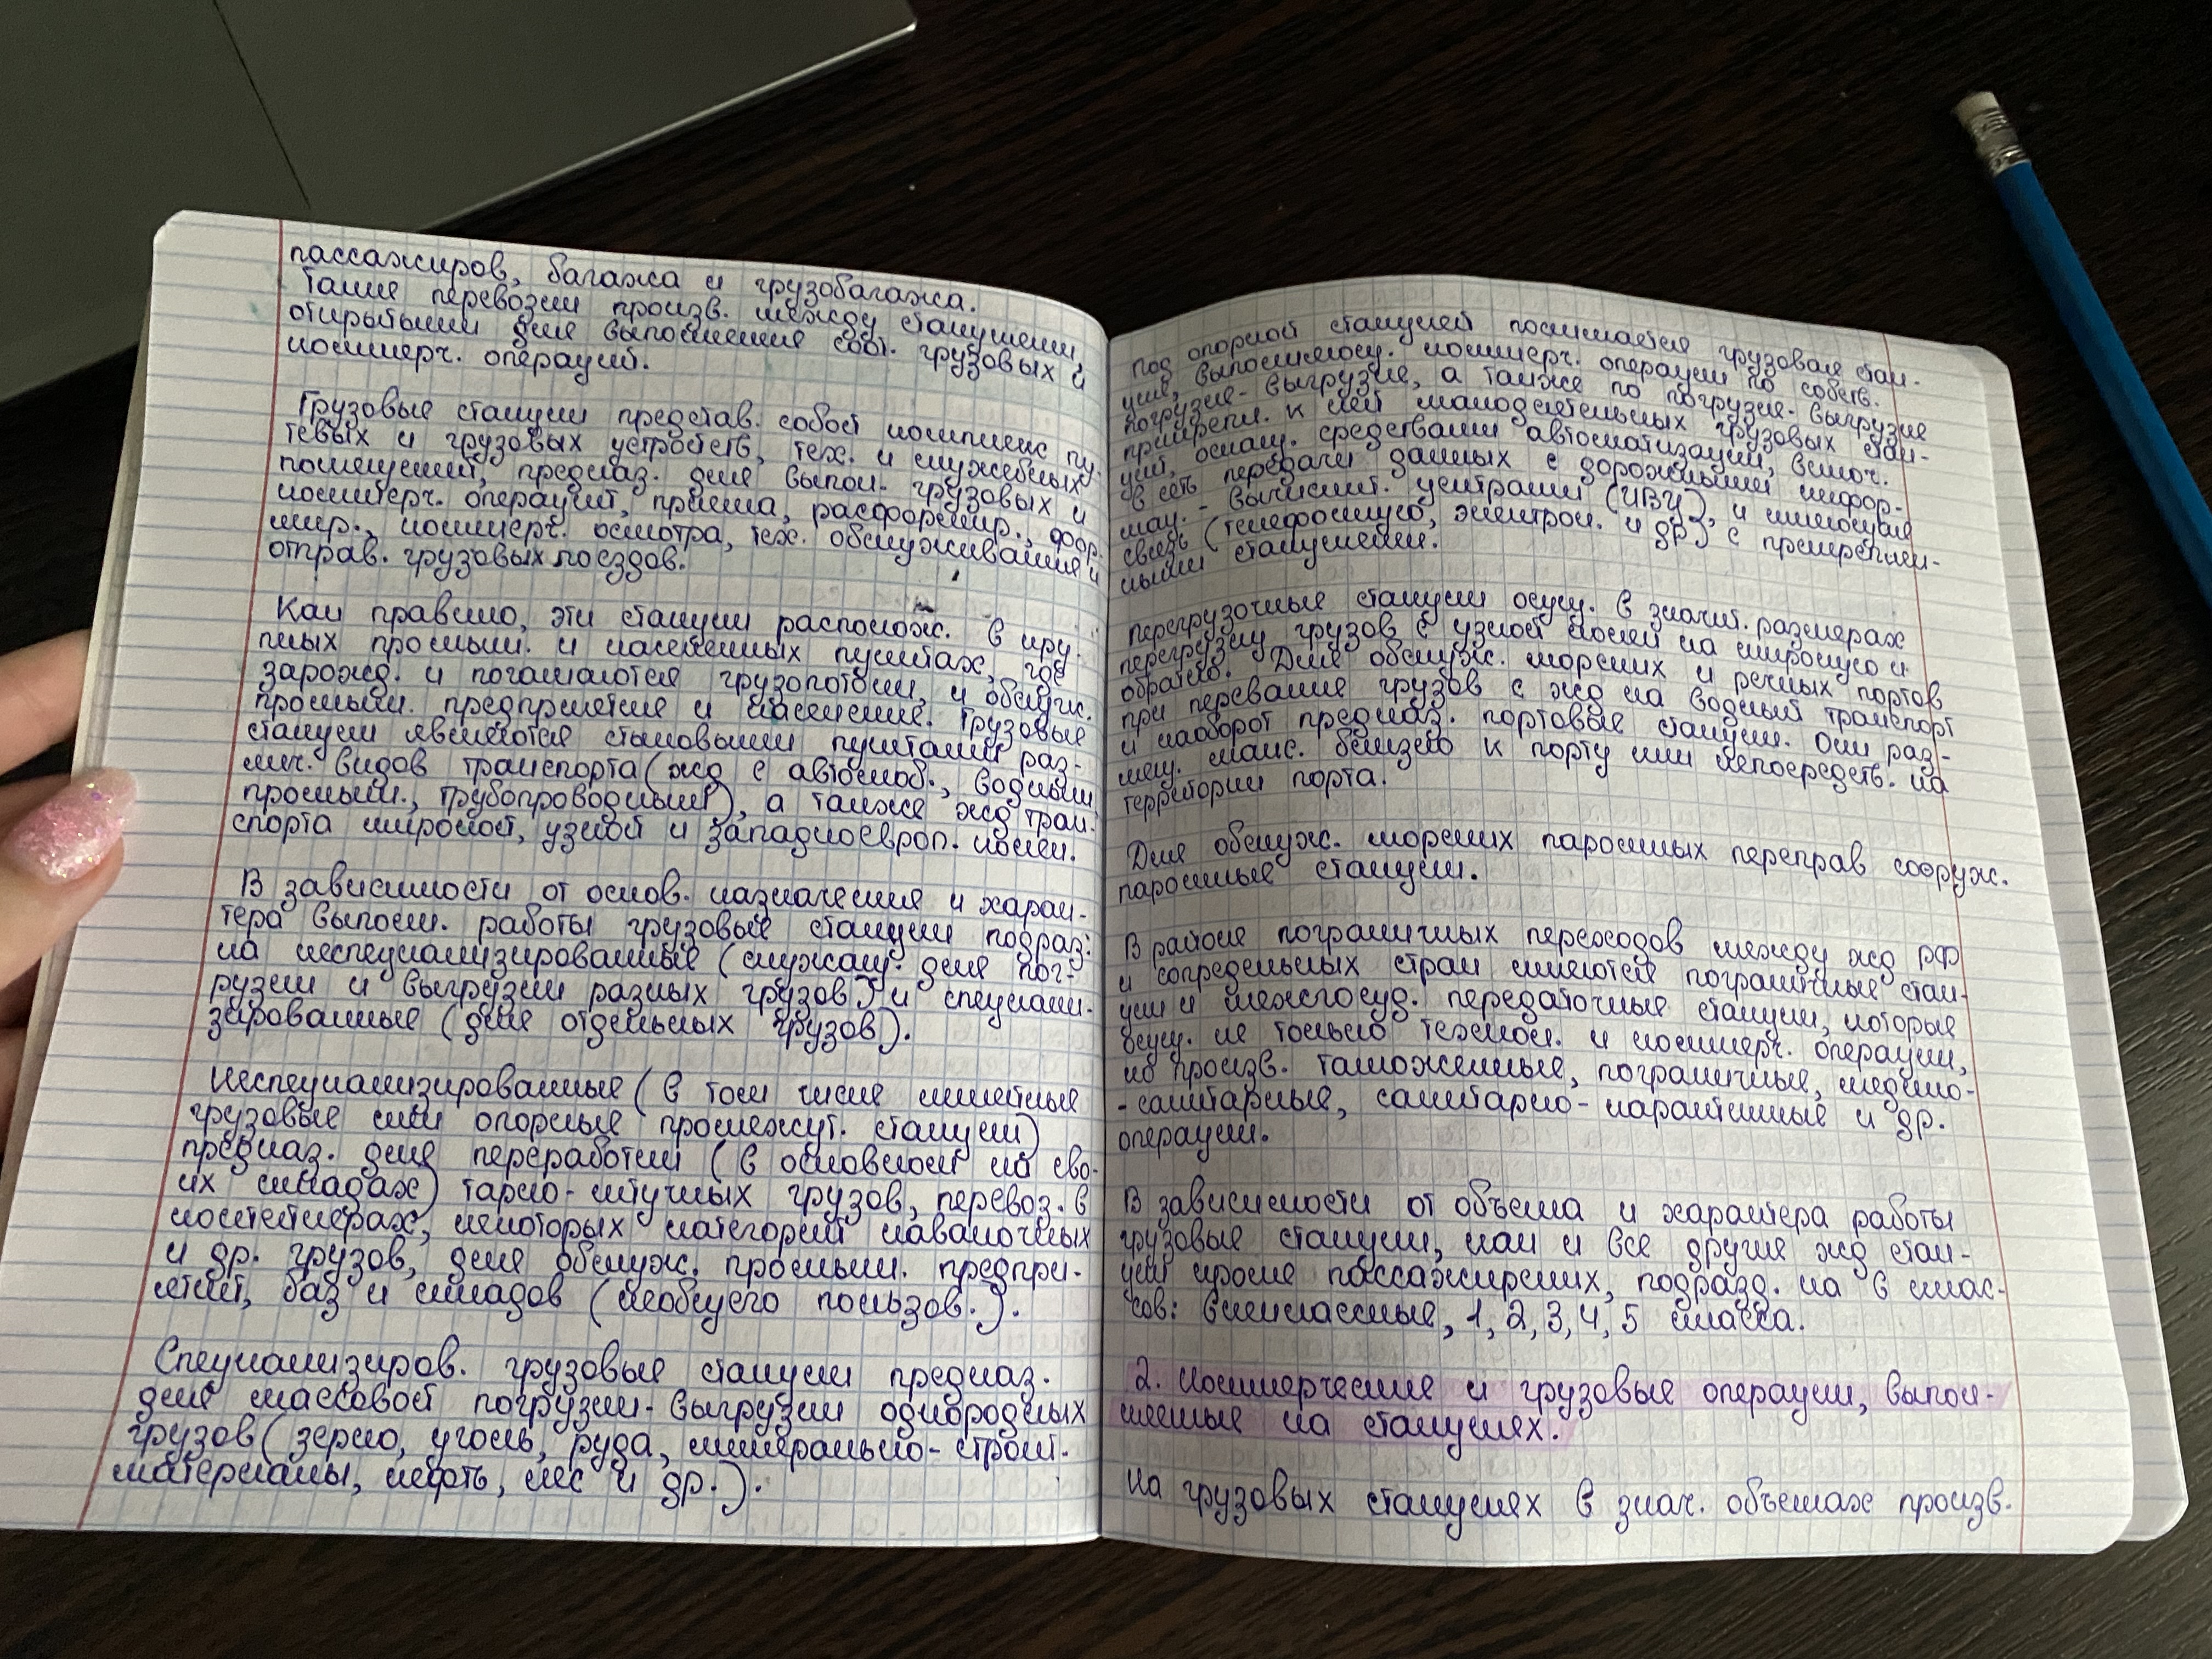 пассажиров, багажа и грузобагажа.
Такие перевозки произв. между станциями,
открытыми для выполнения соот. грузовых и
коммерч. операций.
Грузовые станции представ. собой комплекс пу-
тевых и грузовых устройств, тех. и служебных
помещений, предназ. для выпол. грузовых и
коммерч. операций, приёма, расформир., фор-
мир., коммерч. осмотра, тех. обслуживания и
отправ. грузовых поездов.
Как правило, эти станции располож. в кру-
пных промышл. и населённых пунктах, где
зарожд. и погашаются грузопотоки, и обслуж.
промышл. предприятия и население. Грузовые
станции являются стыковыми пунктами раз-
лич. видов транспорта (жд с автомоб., водным,
промышл., трубопроводным), а также жд тран-
спорта широкой, узкой и западноевроп. колеи.
В зависимости от основ. назначения и харак-
тера выполн. работы грузовые станции подраз:
на неспециализированные (служащ. для пог-
рузки и выгрузки разных грузов) и специали-
зированные (для отдельных грузов).
Неспециализированные (в том числе линейные
грузовые или опорные промежут. станции)
предназ. для переработки (в основном на сво-
их складах) тарно-штучных грузов, перевоз. в
контейнерах, некоторых категорий навалочных
и др. грузов, для обслуж. промышл. предпри-
ятий, баз и складов (необщего пользов.).
Специализиров. грузовые станции предназ.
для массовой погрузки-выгрузки однородных
грузов (зерно, уголь, руда, минерально-строит.
материалы, нефть, лес и др.).
Под опорной станцией понимается грузовая стан-
ция, выполняющ. коммерч. операции по собств.
погрузке-выгрузке, а также по погрузке-выгрузке
прикрепл. к ней малодеятельных грузовых стан-
ций, оснащ. средствами автоматизации, включ.
в сеть передачи данных с дорожными инфор-
мац.-вычислит. центрами (ИВЦ), и имеющие
связь (телефонную, электрон. и др) с прикреплён-
ными станциями.
Перегрузочные станции осущ. в значит. размерах
перегрузку грузов с узкой колеи на широкую и
обратно. Для обслуж. морских и речных портов
при перевалке грузов с жд на водный транспорт
и наоборот предназ. портовые станции. Они раз-
мещ. макс. близко к порту или непосредств. на
территории порта.
Для обслуж. морских паромных переправ сооруж.
паромные станции.
В районе пограничных переходов между жд РФ
и сопредельных стран имеются пограничные стан-
ции и межгосуд. передаточные станции, которые
осущ. не только технол. и коммерч. операции,
но произв. таможенные, пограничные, медико-
-санитарные, санитарно-карантинные и др.
операции.
В зависимости от объёма и характера работы
грузовые станции, как и все другие жд стан-
ции кроме пассажирских, подразд. на 6 клас-
сов: внеклассные, 1, 2, 3, 4, 5 класса.
2. Коммерческие и грузовые операции, выпол-
няемые на станциях.
На грузовых станциях в знач. объёмах произв.